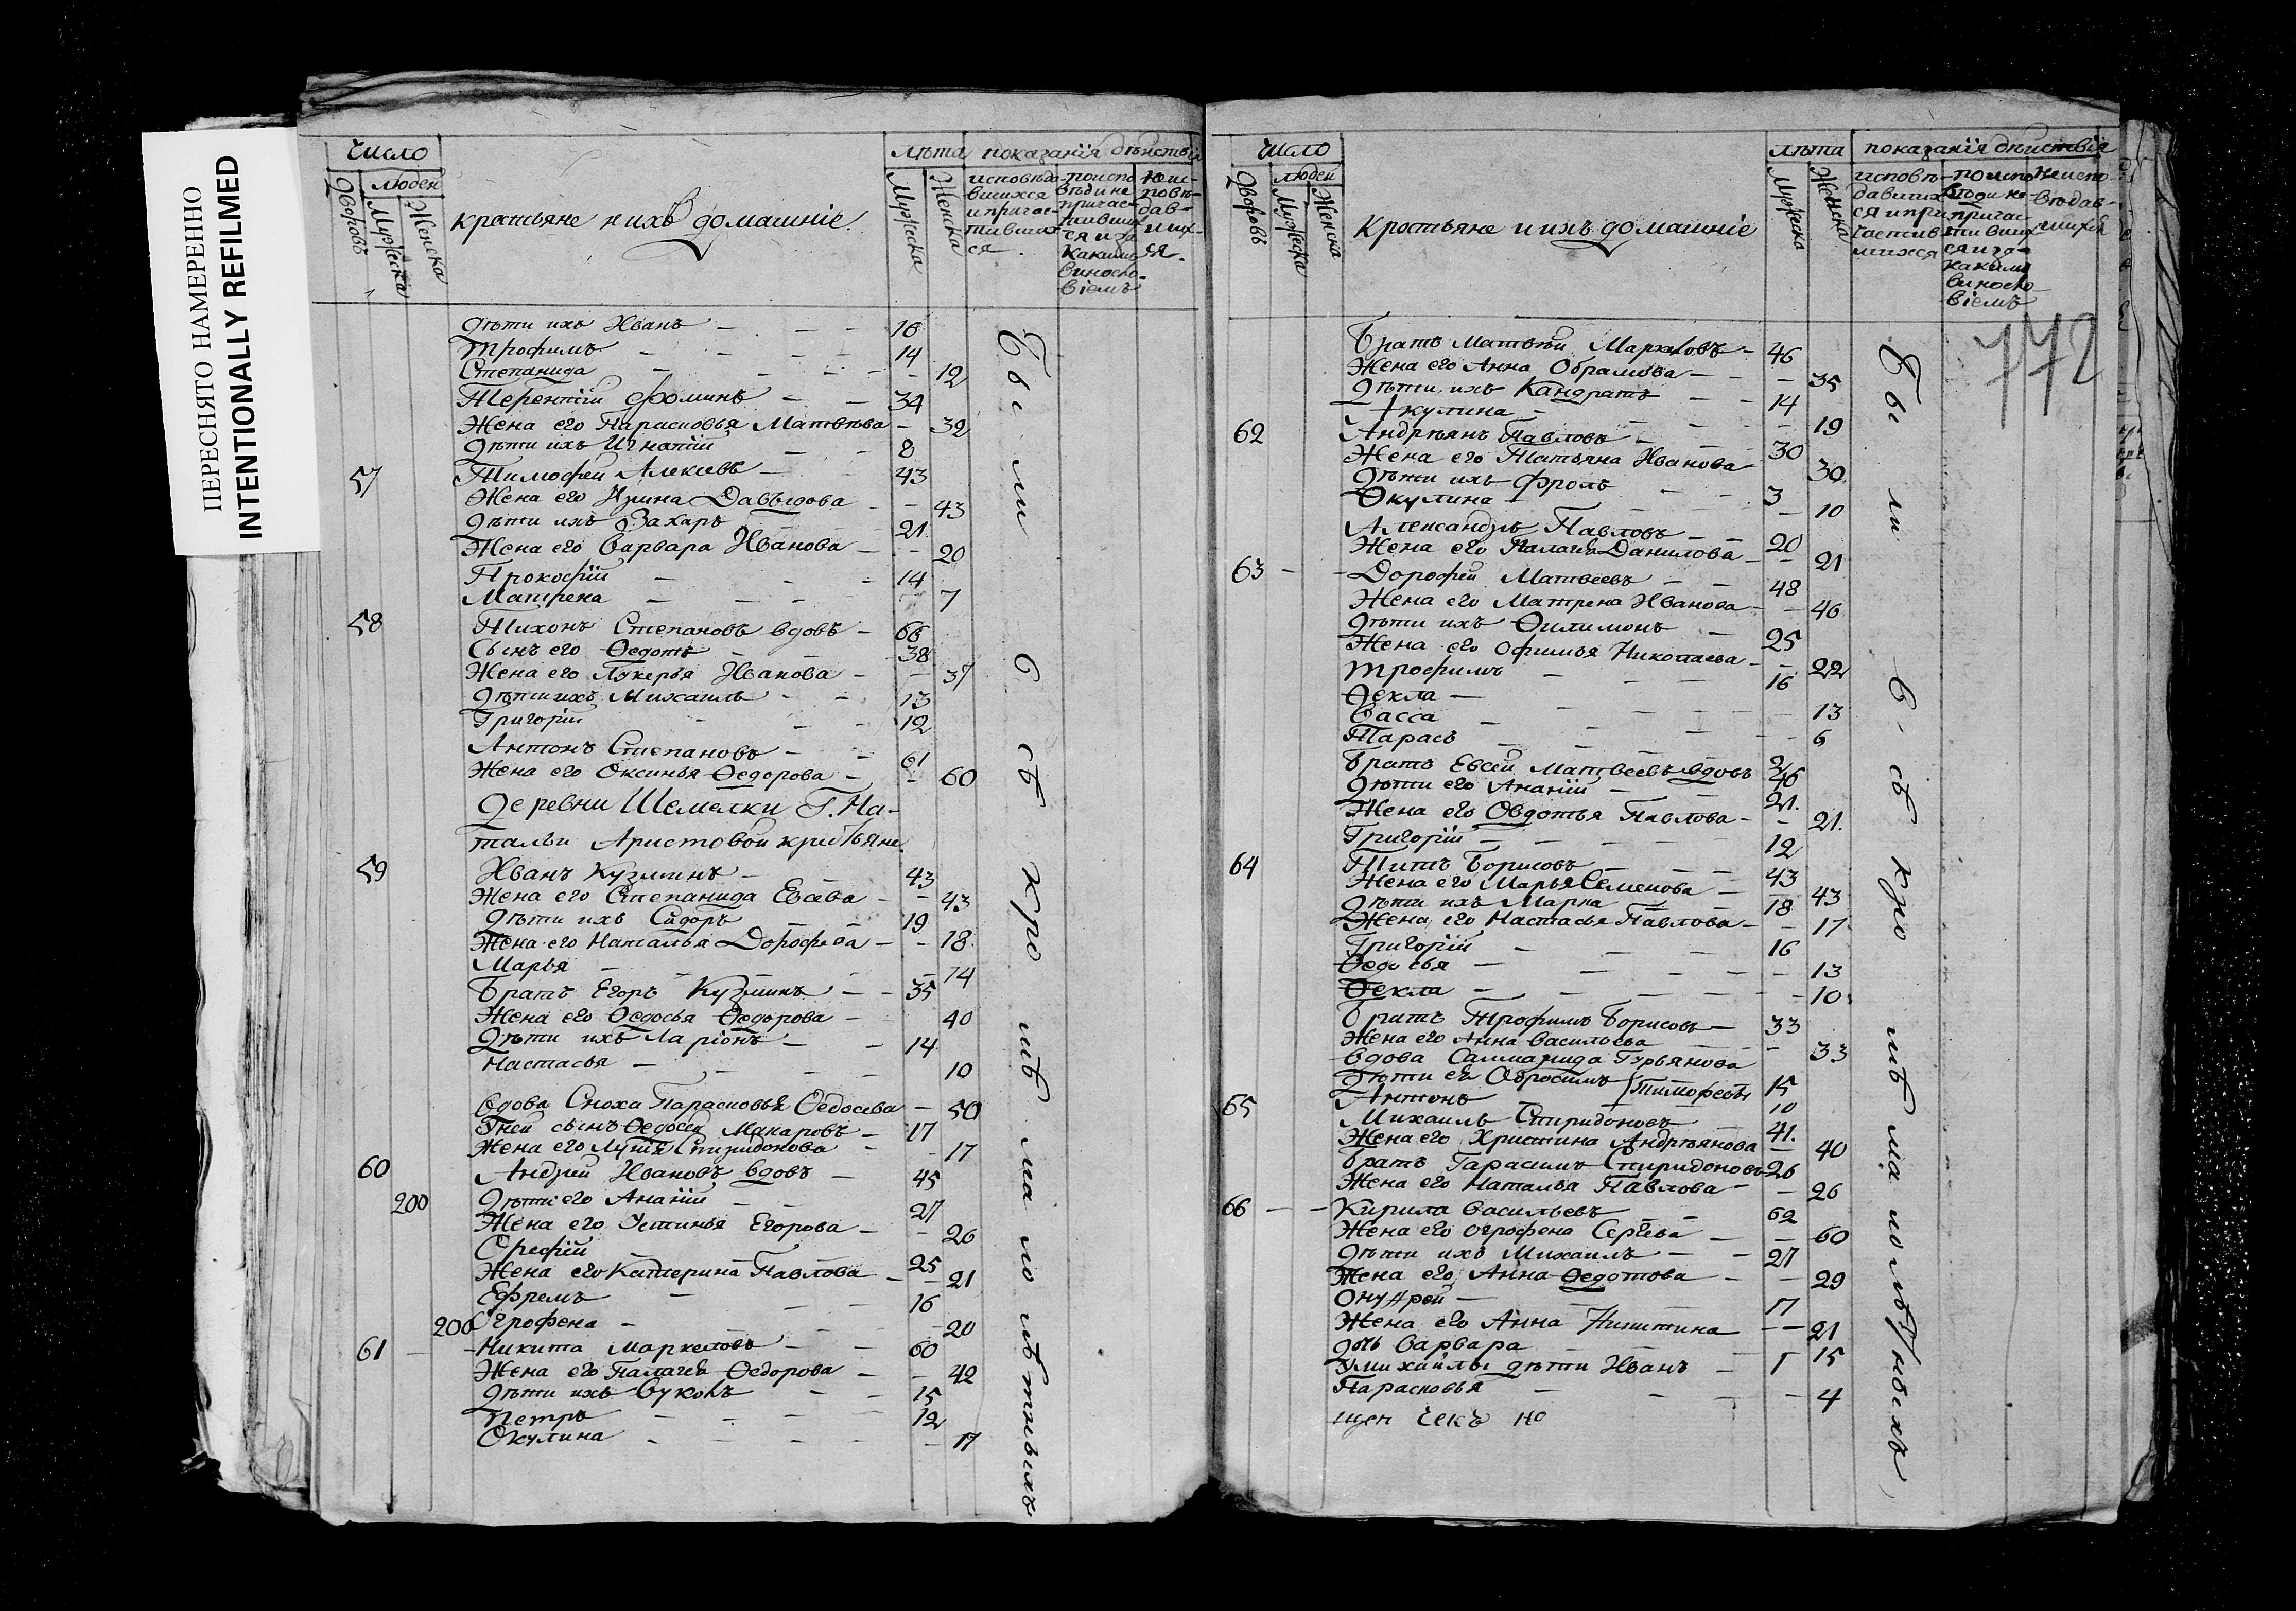 ПЕРЕСНЯТО НАМЕРЕННО
INTENTIONALLY REFILMED
Число
людей
Дворовъ
Мужеска
Женска
крестьяне и ихъ домашніе.
лѣта
Мужеска
Женска
показанія дѣйствія
исповѣда-
вшихся
и причас-
тившихъ
ся.
по испо
вѣди не
причас-
тивших
ся и за
какимъ
винословіемъ
не ис-
повѣ-
дав-
ших-
ся.
Дѣти ихъ Иванъ 16
Трофимъ 14
Степанида 12
Терентій Фоминъ 34
Жена его Парасковья Матвѣева 32
Дѣти ихъ Игнатій 8
57 Тимофей Алексевъ 43
Жена его Ирина Давыдова 43
Дѣти ихъ Захаръ 21
Жена его Варвара Иванова 20
Прокофій 14
Матрена 7
58 Тихонъ Степановъ вдовъ 66
Сынъ его Ѳедотъ 38
Жена его Лукерья Иванова 37
Дѣти ихъ Михаилъ 13
Григорій 12
Антонъ Степановъ 61
Жена его Оксинья Ѳедорова 60
Деревни Шемелки Г. На-
тальи Аристовой крестьяне
59 Иванъ Кузминъ 43
Жена его Степанида 43
Дѣти ихъ Сидоръ 19
Жена его Наталья Дорофѣева 18
Марья 14
Братъ Егоръ Кузминъ 35
Жена его Ѳедосья Ѳедорова 40
Дѣти ихъ Ларіонъ 14
Настасья 10
Вдова Сноха Парасковья Ѳедосева 50
сынъ Ѳедосей Макаровъ 17
Жена его Спиридонова 17
60 Андрей Ивановъ вдовъ 45
200 Дѣти его Ананій 27
Жена его Устинья Егорова 26
Орефій 25
Жена его Катерина Павлова 21
Ефремъ 16
200 Огрофена 20
61 Никита Маркеловъ 60
Жена его Палагея Ѳедорова 42
Дѣти ихъ Вуколъ 15
Петръ 12
Окулина 17
Были въ С кромѣ малолѣтныхъ
Число
людей
Дворовъ
Мужеска
Женска
Крестьяне и ихъ домашніе
лѣта
Мужеска
Женска
показанія дѣйствія
исповѣ-
давших
ся и при
частив
шихся
по испо
вѣди не
причас
тивших
ся и за-
какимъ
винословіемъ
неиспо
вѣдав-
шихся
172
Братъ Матвѣй Маркеловъ 46
Жена его Анна Обрамова 35
Дѣти ихъ Кандратъ 14
Акулина 19
62 Андрѣянъ Павловъ 30
Жена его Татьяна Иванова 30
Дѣти ихъ Фролъ 3
Окулина 10
Александръ Павловъ 20
Жена его Палагея Данилова 21
63 Дорофей Матвеевъ 48
Жена его Матрена Иванова 46
Дѣти ихъ Филимонъ 25
Жена его Офимья Николаева 22
Трофимъ 16
Ѳекла 13
Васса 6
Тарасъ 2
Братъ Евсей Матвеевъ вдовъ 46
Дѣти его Ананій 21
Жена его Овдотья Павлова 21
Григорій 12
64 Титъ Борисовъ 43
Жена его Марья Семенова 43
Дѣти ихъ Марка 18
Жена его Настасья Павлова 17
Григорій 16
Ѳедосья 13
Ѳекла 10
Братъ Трофимъ Борисовъ 33
Жена его Анна Васильева 33
Вдова Гурьянова
Дѣти ея Обросимъ Тимофеевы 15
Антонъ 10
65 Михаилъ Спиридоновъ 41
Жена его Христина Андрѣянова 40
Братъ Гарасимъ Спиридоновъ 26
Жена его Наталья Павлова 26
66 Кирила Васильевъ 62
Жена его Огрофена Сергѣева 60
Дѣти ихъ Михаилъ 27
Жена его Анна Ѳедотова 29
17
Жена его Анна Никитина 21
дочь Варвара 15
У михайлы дѣти Иванъ 1
Парасковья 4
щен чекъ но
Были въ С кромѣ малолѣтныхъ